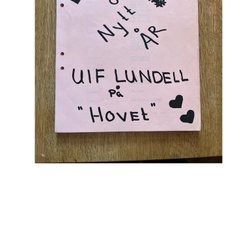 Nytt
ÅR
UlF LUNDELL
På
"HOVet"